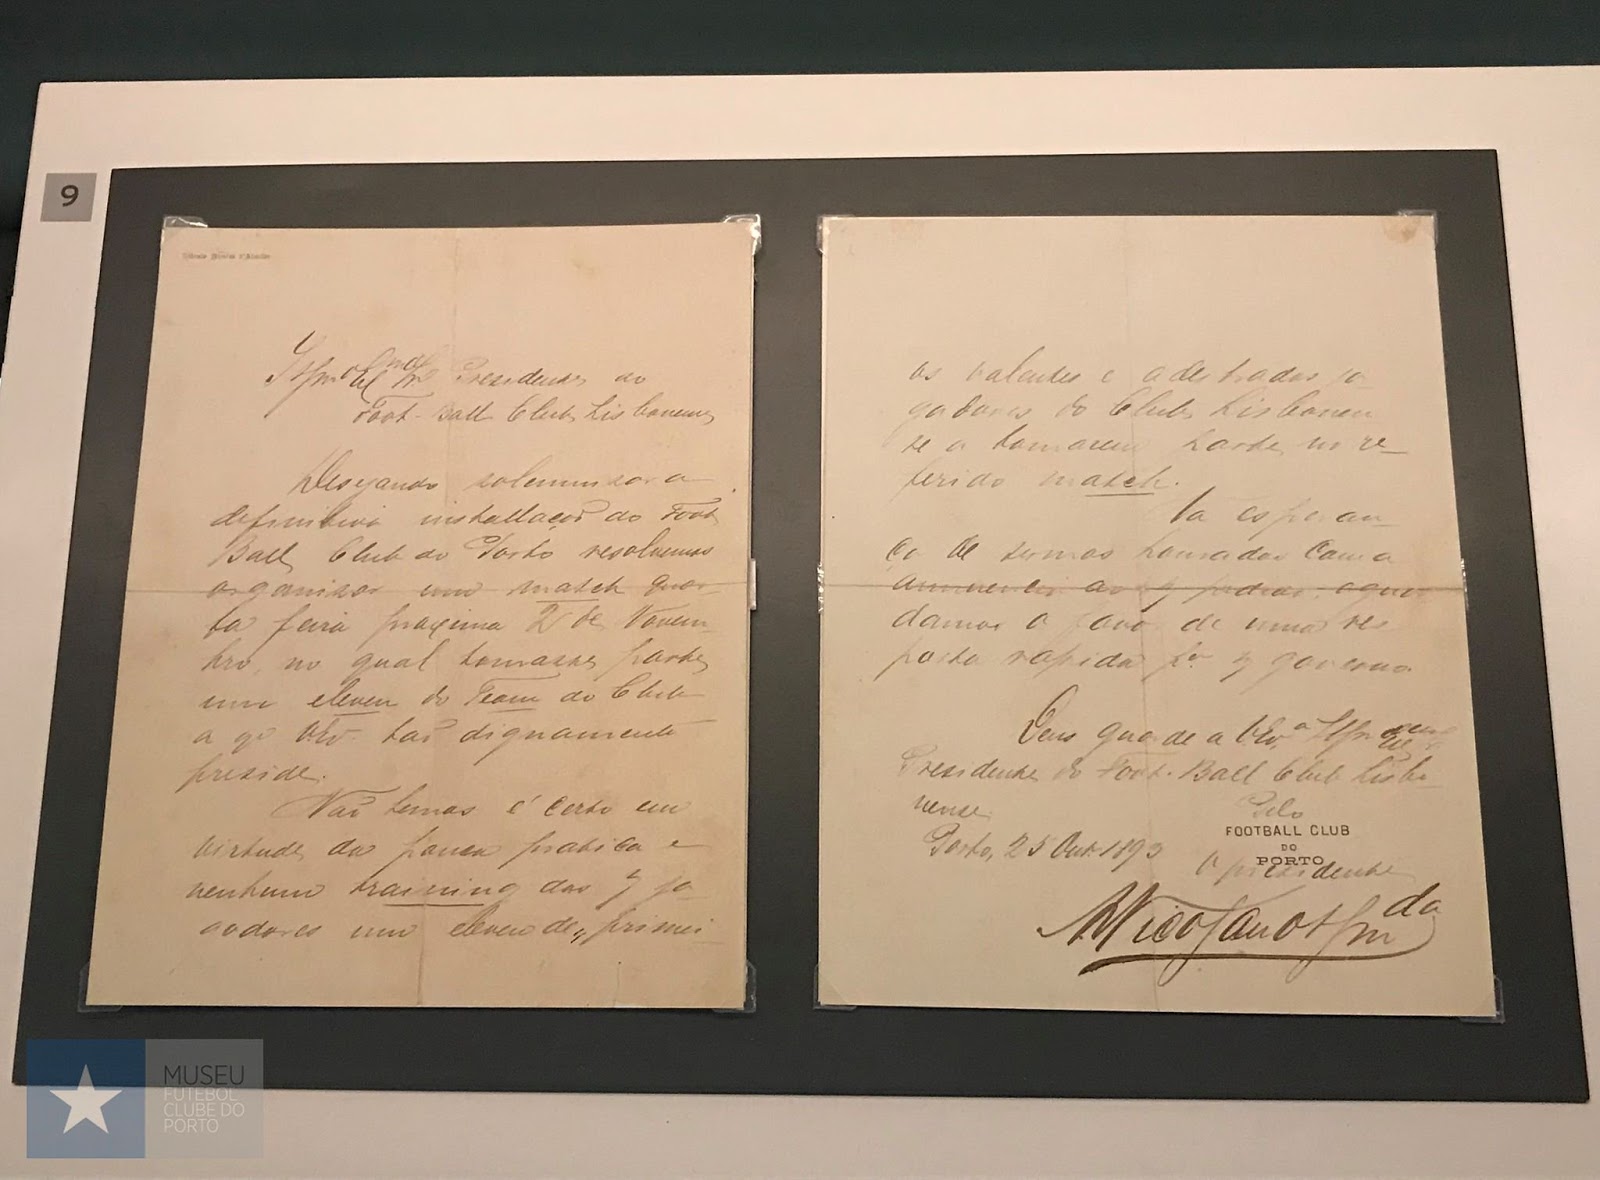 9
Presidente do
Foot-Ball Club Lisbonense
Desejando solemnisar a
definitiva installação do Foot
Ball Club do Porto resolvemos
organisar um match quar-
ta feira proxima 2 de Novem-
bro, no qual tomasse parte
um eleven do Team do Club
a que tão dignamente
preside.
Não temos é certo em
virtude da pouca pratica e
nenhum training dos jo-
gadores um eleven de primei-
os valentes e adestrados jo-
gadores do Club Lisbonen
se a tomarem parte no re-
ferido match.
Na esperan-
ça de sermos honrados com a
annuencia ao pedido aguar
damos o favor de uma res
posta rapida pr governo.
Deus guarde a
Presidente do Foot-Ball Club Lisbo-
nense
Pelo
FOOTBALL CLUB
DO
PORTO
Porto, 25 Out. 1893
O presidente
MUSEU
FUTEBOL
CLUBE DO
PORTO